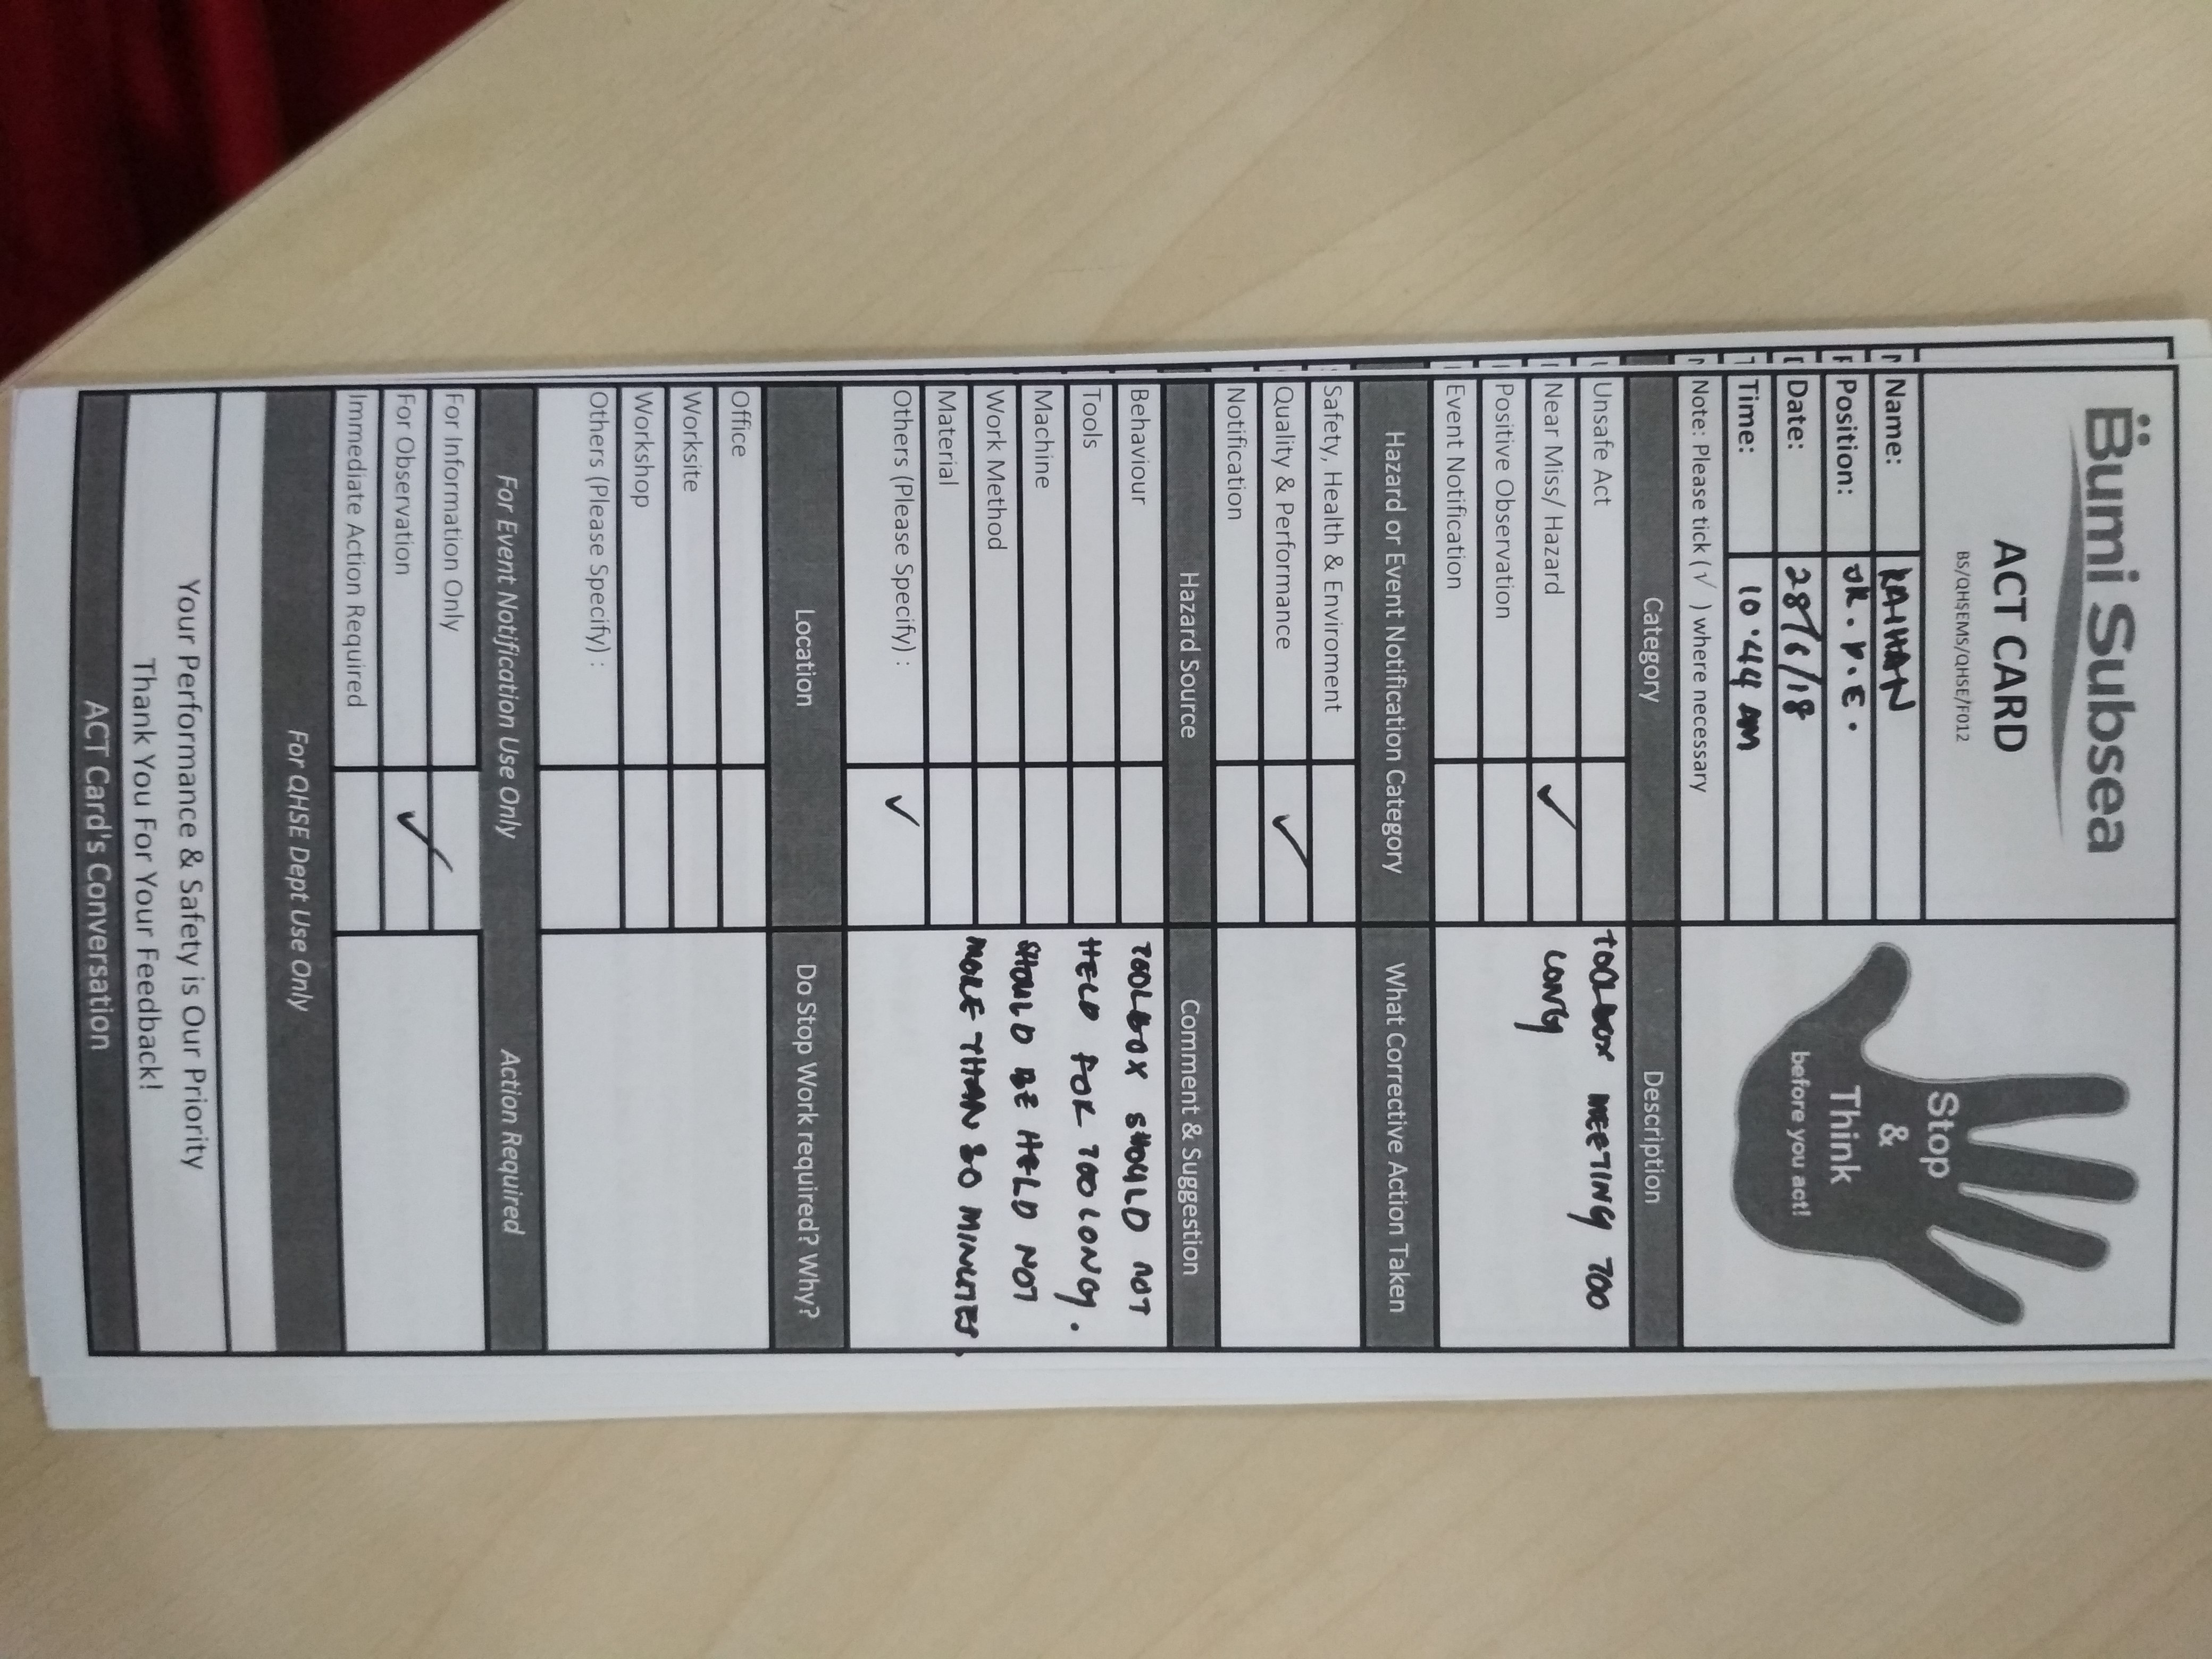 Bumi Subsea
ACT CARD
BS/QHSEMS/QHSE/F012
Stop
&
Think
before you act!
Name: RAIHAN
Position: JR. P.E.
Date: 28/6/18
Time: 10.44 AM
Note: Please tick (√ ) where necessary
Category Description
Unsafe Act TOOLBOX MEETING TOO
Near Miss/ Hazard ✓ LONG
Positive Observation
Event Notification
Hazard or Event Notification Category What Corrective Action Taken
Safety, Health & Enviroment
Quality & Performance ✓
Notification
Hazard Source Comment & Suggestion
Behaviour TOOLBOX SHOULD NOT
Tools HELD FOR TOO LONG.
Machine SHOULD BE HELD NOT
Work Method MORE THAN 30 MINUTES
Material
Others (Please Specify) : ✓
Location Do Stop Work required? Why?
Office
Worksite
Workshop
Others (Please Specify) :
For Event Notification Use Only Action Required
For Information Only
For Observation ✓
Immediate Action Required
For QHSE Dept Use Only
Your Performance & Safety is Our Priority
Thank You For Your Feedback!
ACT Card's Conversation